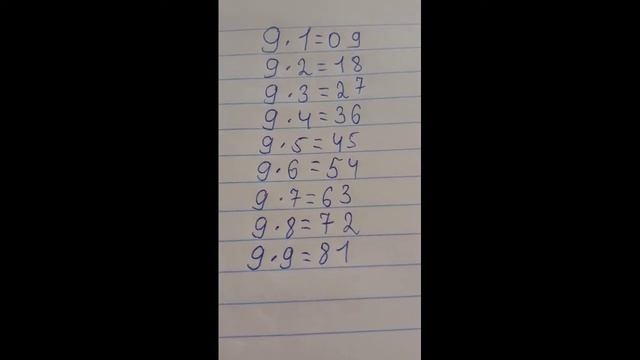 9·1=09
9·2=18
9·3=27
9·4=36
9·5=45
9·6=54
9·7=63
9·8=72
9·9=81